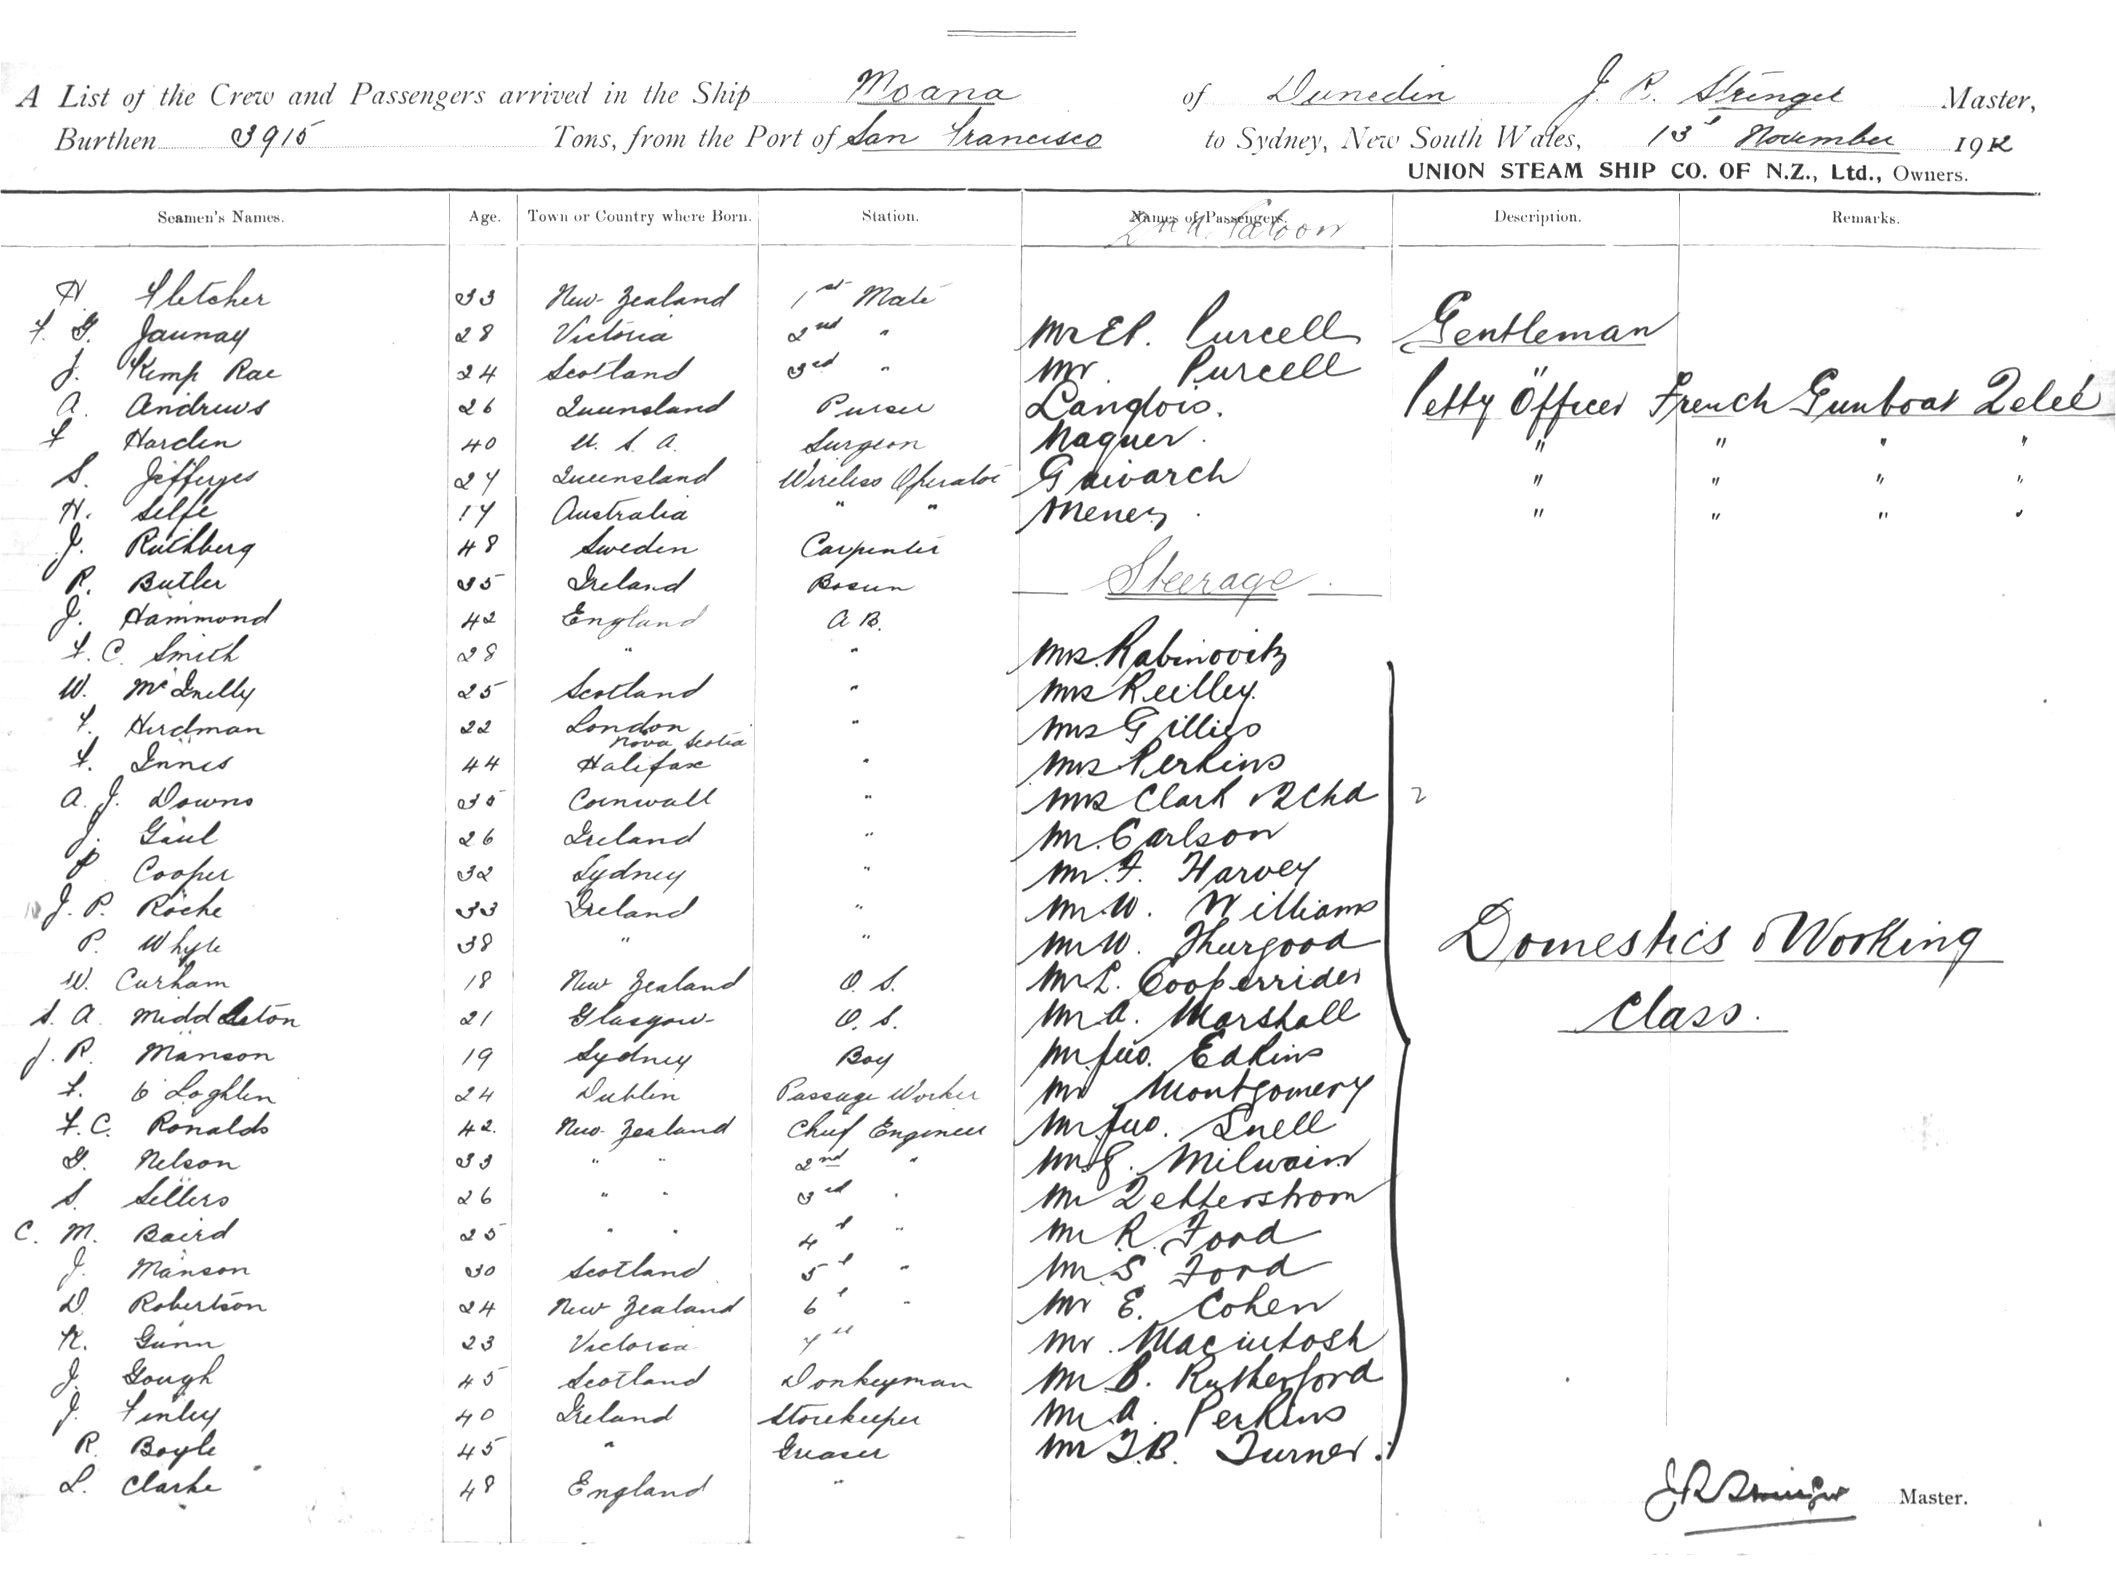 A List of the Crew and Passengers arrived in the Ship Moana of Dunedin J. R. Stringer Master,
Burthen 3915 Tons, from the Port of San Francisco to Sydney, New South Wales, 13th November 1912
UNION STEAM SHIP CO. OF N.Z., Ltd., Owners.
Seamen's Names. Age. Town or Country where Born. Station. Names of Passengers. Description. Remarks.
2nd Saloon
H. Fletcher 33 New Zealand 1st Mate
F. G. Jaunay 28 Victoria 2nd " Mr E P. Purcell Gentleman
J. Kemp Rae 24 Scotland 3rd " Mr Purcell "
A. Andrews 26 Queensland Purser Langlois. Petty Officer French Gunboat Zeleé
F Harden 40 U. S. A. Surgeon Naguer. " " " "
S. Jefferyes 27 Queensland Wireless Operator Gaivarch " " " "
H. Selfe 17 Australia " " Menez. " " " "
J. Ruthberg 48 Sweden Carpenter
P. Butler 35 Ireland Bosun Steerage.
J. Hammond 42 England A B.
F. C. Smith 28 " " Mrs. Rabinovitz
W. McInelly 25 Scotland " Mrs Reilley.
F. Herdman 22 London " Mrs Gillies
F. Innes 44 Nova Scotia Halifax " Mrs Perkins
A. J. Downs 35 Cornwall " Mrs Clark & 2 Chd 2
J. Gaul 26 Ireland " Mr. Carlson
P Cooper 32 Sydney " Mr. F. Harvey
J. P. Roche 33 Ireland " Mr W. Williams
P. Whyte 38 " " Mr W. Thurgood Domestics & Working
W. Curham 18 New Zealand O. S. Mr L. Cooperrider
S. A. Middleton 21 Glasgow O. S. Mr A. Marshall Class.
J. R. Manson 19 Sydney Boy Mr Jno. Edkins
F. O'Loghlen 24 Dublin Passage Worker Mr Montgomery
F. C. Ronalds 42. New Zealand Chief Engineer Mr Jno. Snell
G. Nelson 33 " " 2nd " Mr G. Milwain
S. Sellers 26 " " 3rd " Mr Zetterstrom
C. M. Baird 25 " " 4th " Mr R. Ford
J. Manson 30 Scotland 5th " Mr S. Ford
D. Robertson 24 New Zealand 6th " Mr E. Cohen
K. Gunn 23 Victoria 7th Mr. Macintosh
J. Gough 45 Scotland Donkeyman Mr B. Rutherford
J. Finley 40 Ireland Storekeeper Mr A. Perkins
R. Boyle 45 " Greaser Mr T. B. Turner.
L. Clarke 48 England "
J R Stringer Master.